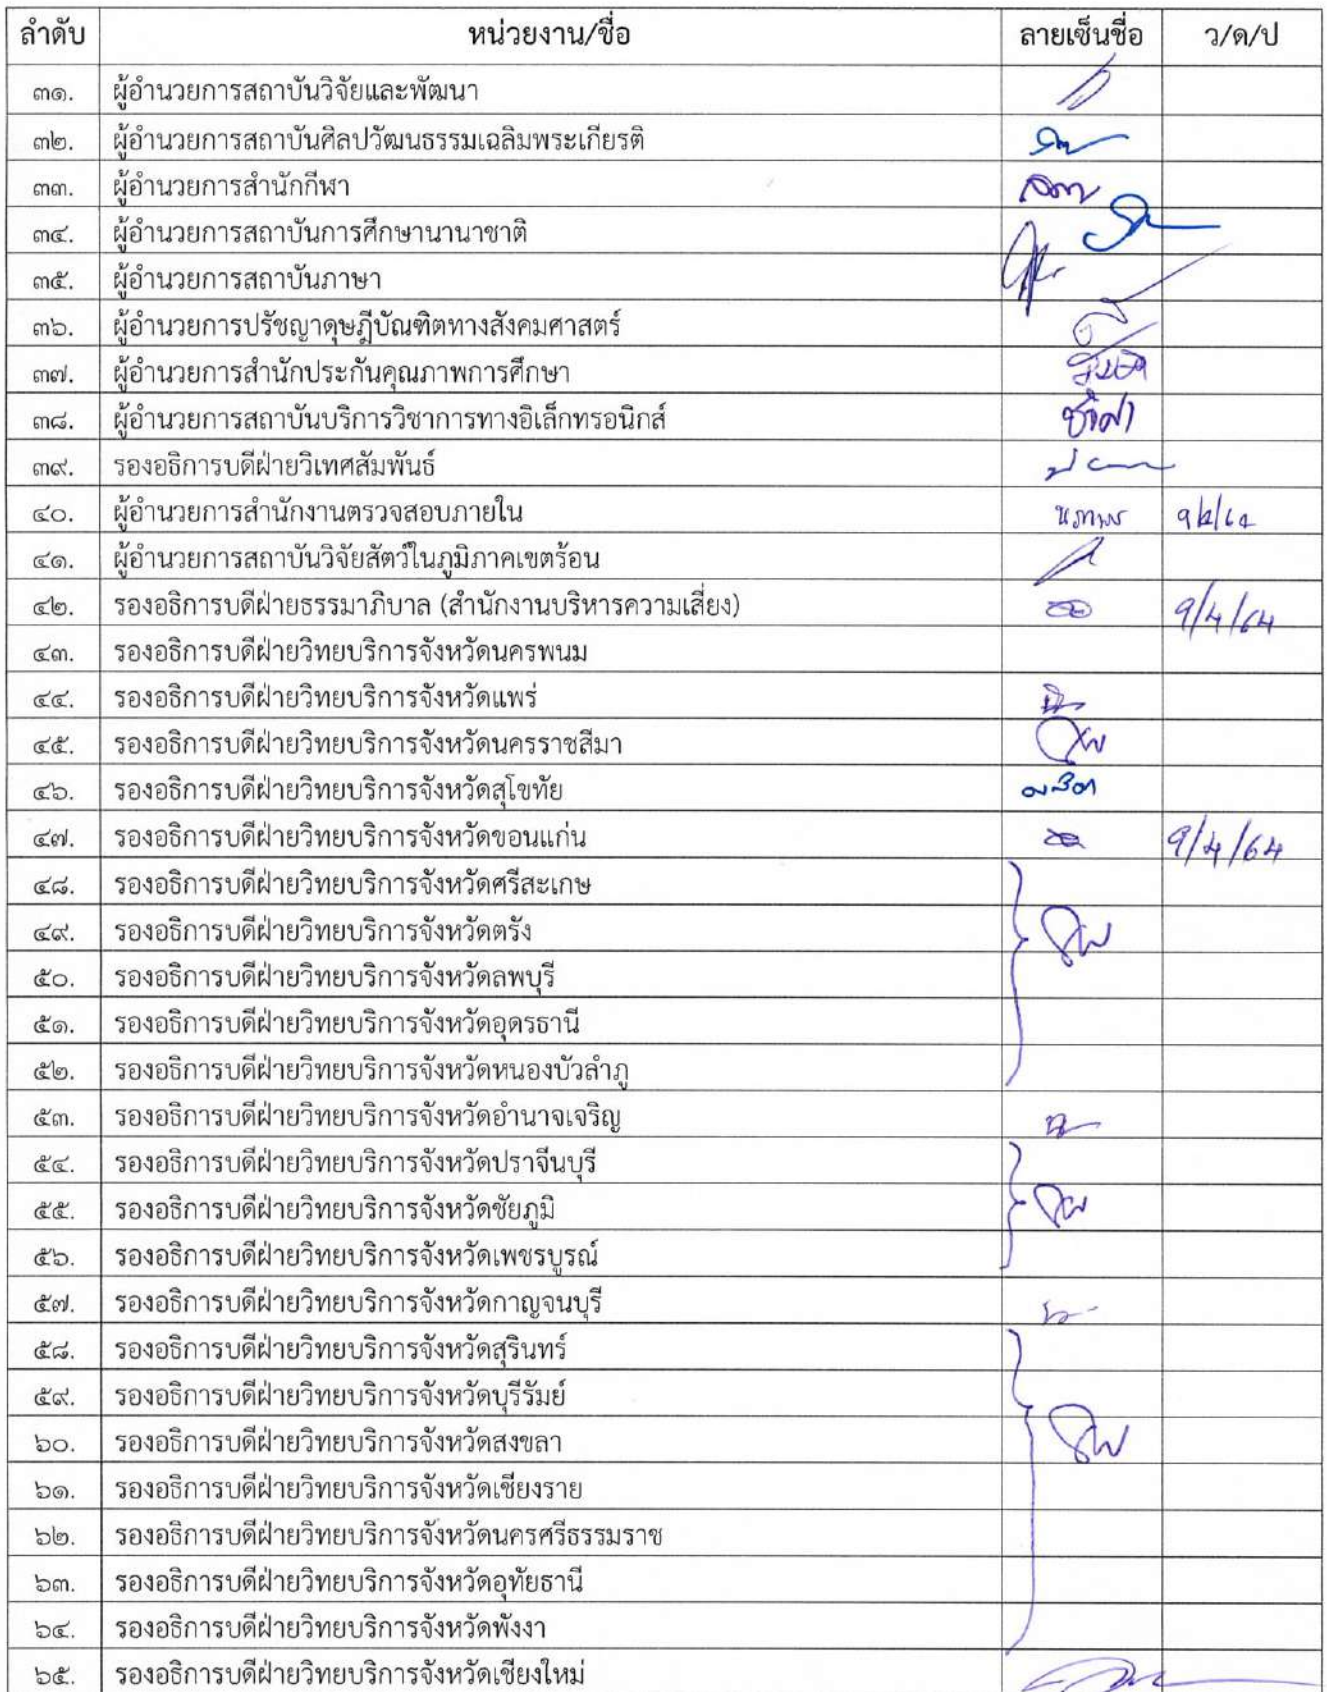 ลำดับ หน่วยงาน/ชื่อ ลายเซ็นชื่อ ว/ด/ป
๓๑. ผู้อำนวยการสถาบันวิจัยและพัฒนา
๓๒. ผู้อำนวยการสถาบันศิลปวัฒนธรรมเฉลิมพระเกียรติ
๓๓. ผู้อำนวยการสำนักกีฬา
๓๔. ผู้อำนวยการสถาบันการศึกษานานาชาติ
๓๕. ผู้อำนวยการสถาบันภาษา
๓๖. ผู้อำนวยการปรัชญาดุษฎีบัณฑิตทางสังคมศาสตร์
๓๗. ผู้อำนวยการสำนักประกันคุณภาพการศึกษา
๓๘. ผู้อำนวยการสถาบันบริการวิชาการทางอิเล็กทรอนิกส์
๓๙. รองอธิการบดีฝ่ายวิเทศสัมพันธ์
๔๐. ผู้อำนวยการสำนักงานตรวจสอบภายใน
๔๑. ผู้อำนวยการสถาบันวิจัยสัตว์ในภูมิภาคเขตร้อน
๔๒. รองอธิการบดีฝ่ายธรรมาภิบาล (สำนักงานบริหารความเสี่ยง) 9/4/64
๔๓. รองอธิการบดีฝ่ายวิทยบริการจังหวัดนครพนม
๔๔. รองอธิการบดีฝ่ายวิทยบริการจังหวัดแพร่
๔๕. รองอธิการบดีฝ่ายวิทยบริการจังหวัดนครราชสีมา
๔๖. รองอธิการบดีฝ่ายวิทยบริการจังหวัดสุโขทัย
๔๗. รองอธิการบดีฝ่ายวิทยบริการจังหวัดขอนแก่น 9/4/64
๔๘. รองอธิการบดีฝ่ายวิทยบริการจังหวัดศรีสะเกษ
๔๙. รองอธิการบดีฝ่ายวิทยบริการจังหวัดตรัง
๕๐. รองอธิการบดีฝ่ายวิทยบริการจังหวัดลพบุรี
๕๑. รองอธิการบดีฝ่ายวิทยบริการจังหวัดอุดรธานี
๕๒. รองอธิการบดีฝ่ายวิทยบริการจังหวัดหนองบัวลำภู
๕๓. รองอธิการบดีฝ่ายวิทยบริการจังหวัดอำนาจเจริญ
๕๔. รองอธิการบดีฝ่ายวิทยบริการจังหวัดปราจีนบุรี
๕๕. รองอธิการบดีฝ่ายวิทยบริการจังหวัดชัยภูมิ
๕๖. รองอธิการบดีฝ่ายวิทยบริการจังหวัดเพชรบูรณ์
๕๗. รองอธิการบดีฝ่ายวิทยบริการจังหวัดกาญจนบุรี
๕๘. รองอธิการบดีฝ่ายวิทยบริการจังหวัดสุรินทร์
๕๙. รองอธิการบดีฝ่ายวิทยบริการจังหวัดบุรีรัมย์
๖๐. รองอธิการบดีฝ่ายวิทยบริการจังหวัดสงขลา
๖๑. รองอธิการบดีฝ่ายวิทยบริการจังหวัดเชียงราย
๖๒. รองอธิการบดีฝ่ายวิทยบริการจังหวัดนครศรีธรรมราช
๖๓. รองอธิการบดีฝ่ายวิทยบริการจังหวัดอุทัยธานี
๖๔. รองอธิการบดีฝ่ายวิทยบริการจังหวัดพังงา
๖๕. รองอธิการบดีฝ่ายวิทยบริการจังหวัดเชียงใหม่